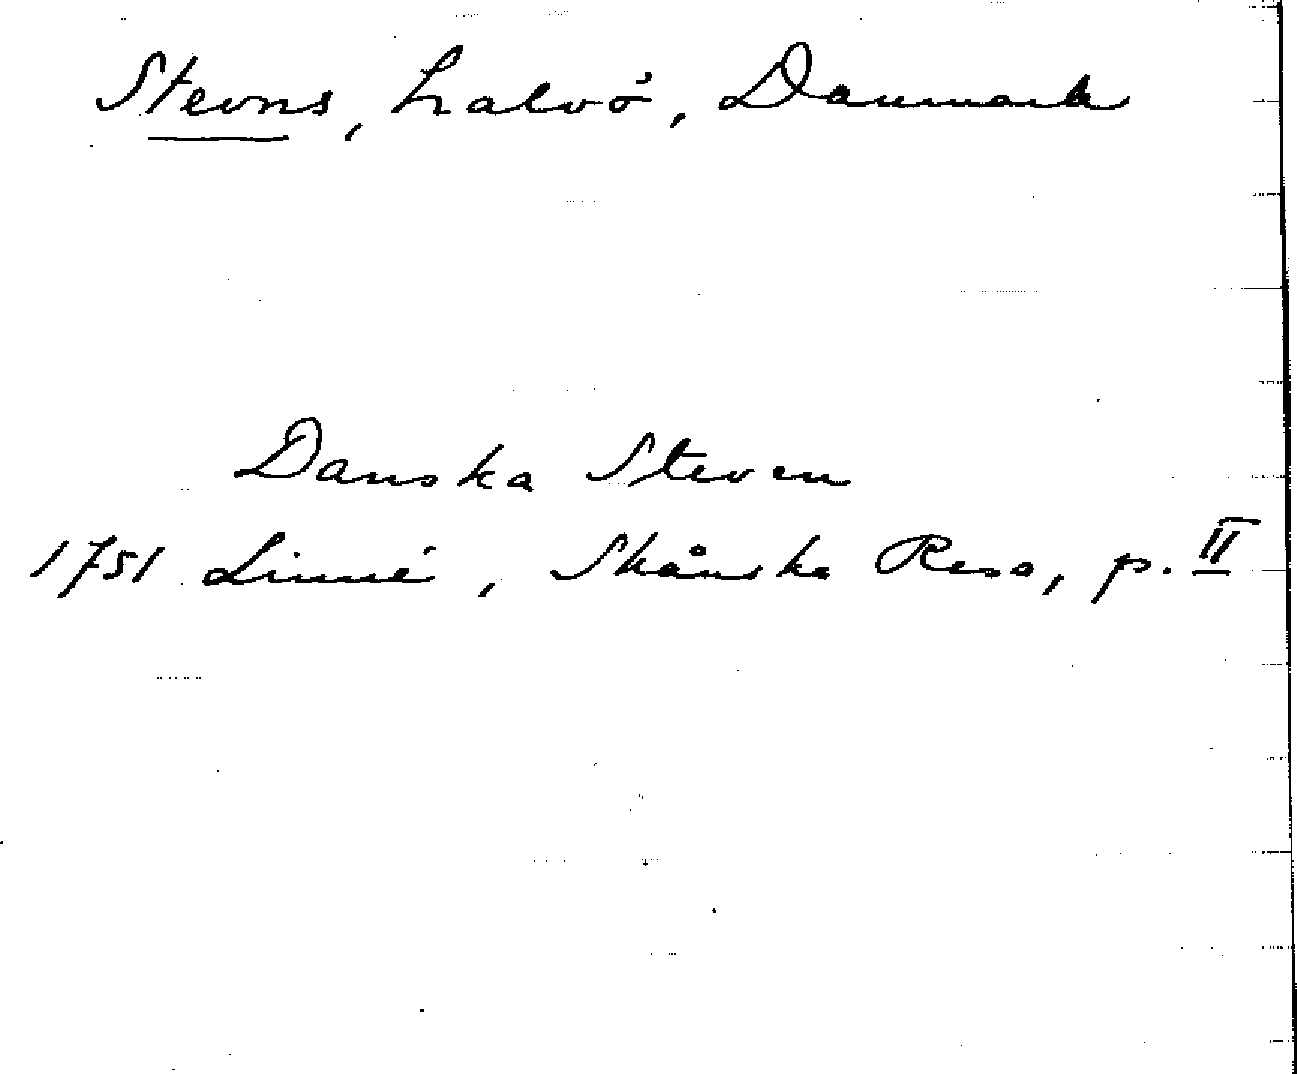 Stevns, halvö, Danmark
Danska Steven
1751 Linné, Skånska Resa, p. II